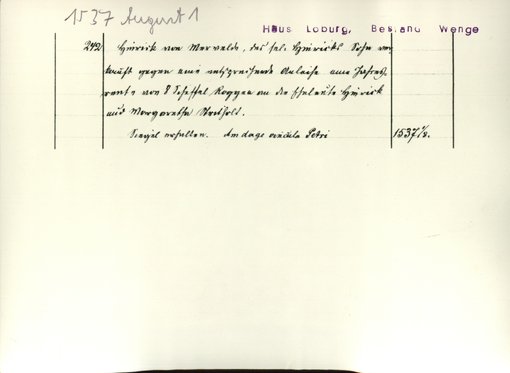 1537 August 1
Haus Loburg, Bestand Wenge
242 Hinrick von Merveldt, des sel. Hinricks Sohn ver-
kauft gegen eine entsprechende Anleihe eine Jahres-
rente von 8 Scheffel Roggen an die Eheleute Hinrick
und Margaretha
Siegel erhalten. Am dage vincula Petri 1537 1/8.